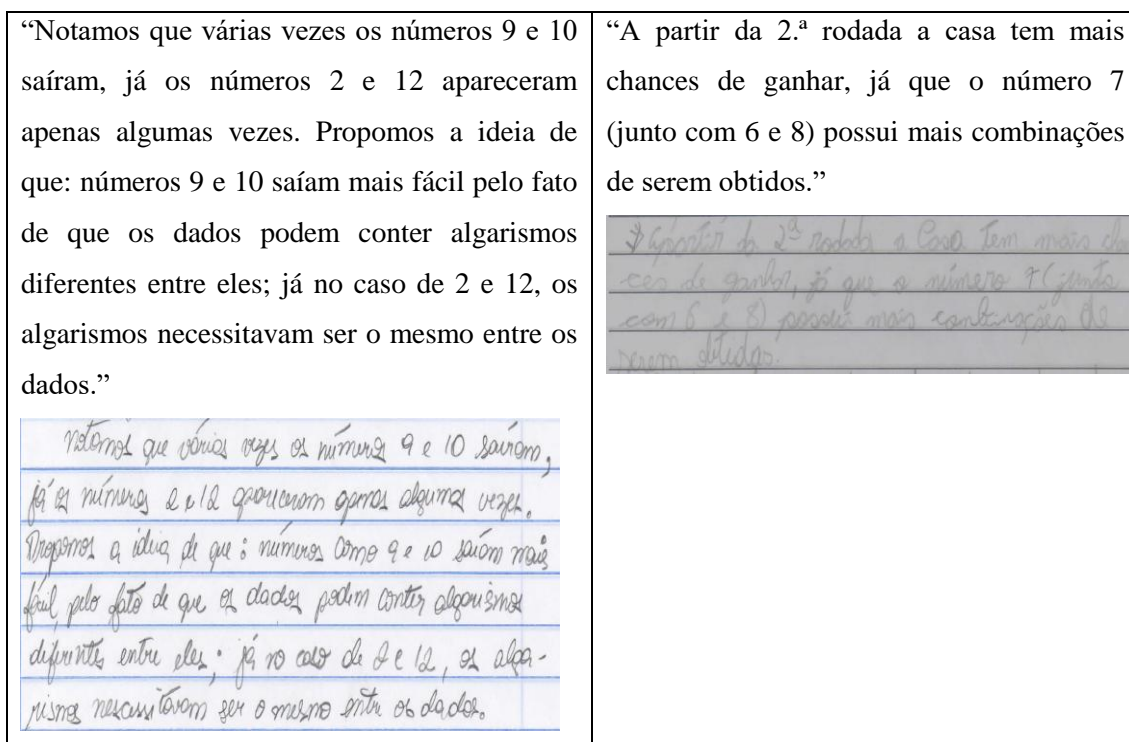 “Notamos que várias vezes os números 9 e 10
saíram, já os números 2 e 12 apareceram
apenas algumas vezes. Propomos a ideia de
que: números 9 e 10 saíam mais fácil pelo fato
de que os dados podem conter algarismos
diferentes entre eles; já no caso de 2 e 12, os
algarismos necessitavam ser o mesmo entre os
dados.”
notamos que várias vezes os números 9 e 10 sairam,
já os números 2 e 12 apareceram apenas algumas vezes.
Propomos a ideia de que: números como 9 e 10 saiam mais
fácil, pelo fato de que os dados podem conter algarismos
diferentes entre eles; já no caso de 2 e 12, os alga-
rismos nescessitavam ser o mesmo entre os dados.
“A partir da 2.ª rodada a casa tem mais
chances de ganhar, já que o número 7
(junto com 6 e 8) possui mais combinações
de serem obtidos.”
Apartir da 2ª rodada a Casa tem mais chan
ces de ganhar, já que o número 7 (junto
com 6 e 8) possui mais combinações de
serem obtidos.